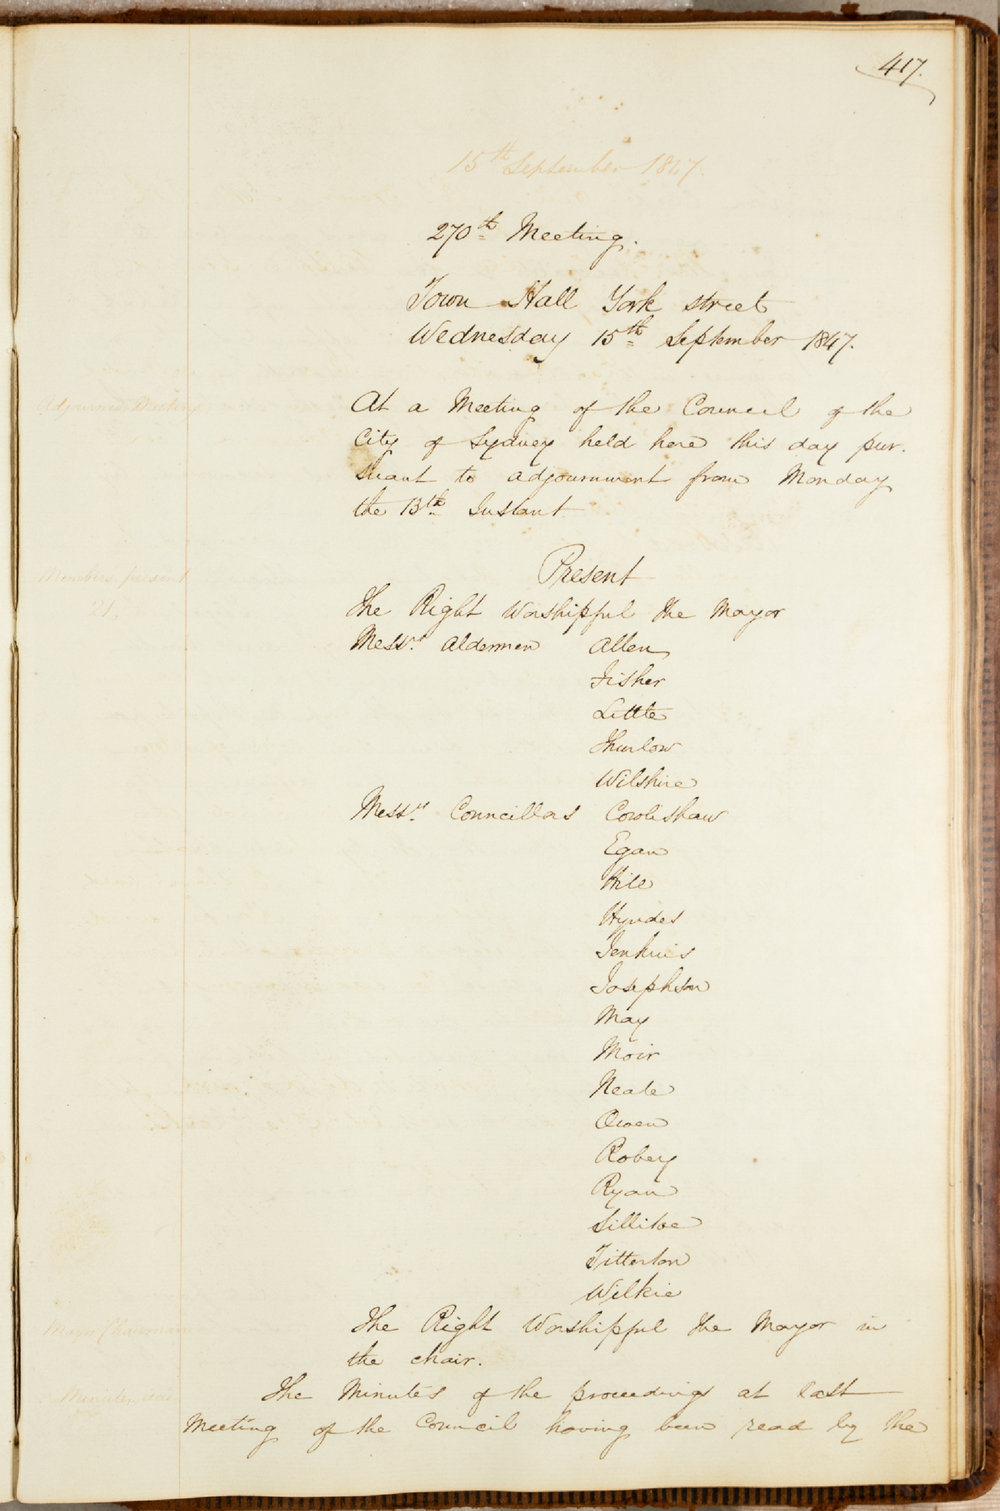 417.
15th September 1847.
270th Meeting.
Town Hall York street
Wednesday 15th September 1847.
Adjourned Meeting
At a Meeting of the Council of the
City of Sydney held here this day pur.
suant to adjournment from Monday
the 13th Instant
Present
Members present
21.
The Right Worshipful the Mayor
Messrs. Aldermen Allen
Fisher
Little
Thurlow
Wilshire
Messrs. Councillors Cowlishaw
Egan
Hill
Hyndes
Jenkins
Josephson
May
Moir
Neale
Owen
Robey
Ryan
Sillitoe
Titterton
Wilkie
Mayor Chairman
The Right Worshipful the Mayor in
the chair.
Minutes read
The Minutes of the proceedings at last
Meeting of the Council having been read by the